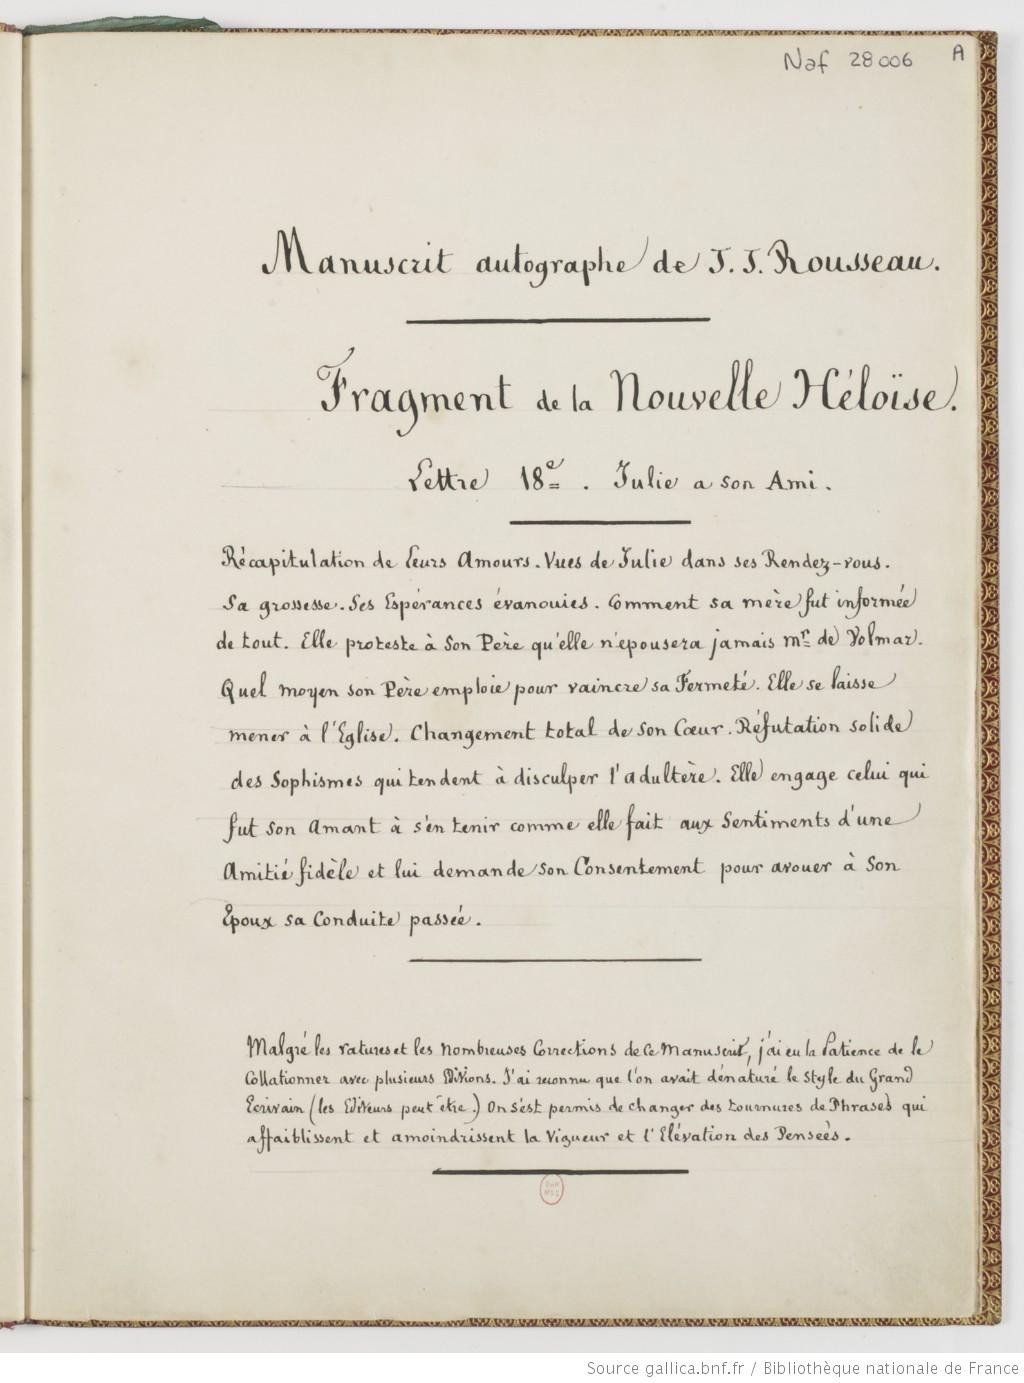 Naf 28006 A
Manuscrit autographe de J. J. Rousseau.
Fragment de la Nouvelle Héloïse.
Lettre 18e. Julie a son Ami.
Récapitulation de leurs Amours. Vues de Julie dans ses Rendez-vous.
Sa grossesse. Ses Espérances évanouies. Comment sa mère fut informée
de tout. Elle proteste à Son Père qu'elle n'epousera jamais mr de Volmar.
Quel moyen son Père emploie pour vaincre sa Fermeté. Elle se laisse
mener à l'Eglise. Changement total de son Cœur. Réfutation solide
des Sophismes qui tendent à disculper l'adultère. Elle engage celui qui
fut son Amant à s'en tenir comme elle fait aux Sentiments d'une
Amitié fidèle et lui demande son Consentement pour avouer à Son
Epoux sa Conduite passée.
Malgré les ratures et les nombreuses Corrections de ce Manuscrit, j'ai eu la Patience de le
Collationner avec plusieurs Editions. J'ai reconnu que l'on avait dénaturé le Style du Grand
Ecrivain (les Editeurs peut être.) On s'est permis de changer des tournures de Phrases qui
affaiblissent et amoindrissent la Vigueur et l'Elévation des Pensées.
Source gallica.bnf.fr / Bibliothèque nationale de France